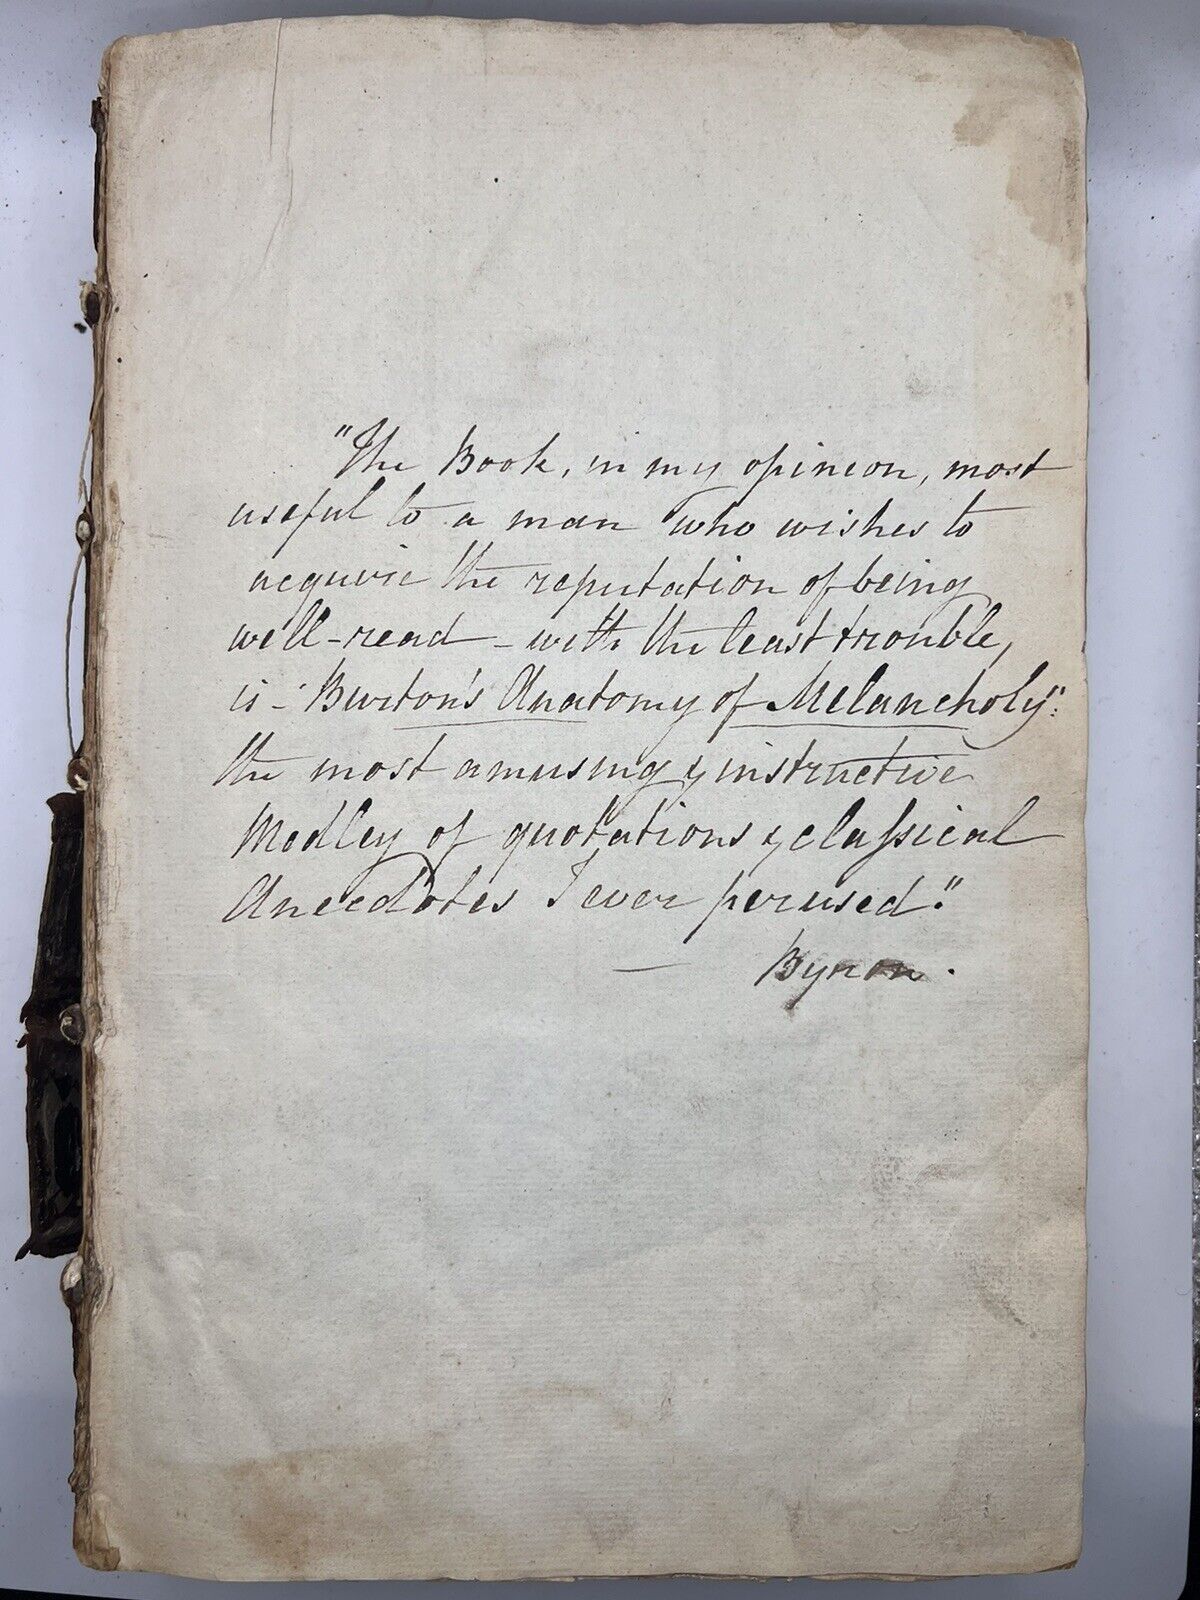 "The Book, in my opinion, most
useful to a man who wishes to
acquire the reputation of being
well-read - with the least trouble,
is - "Burton's Anatomy of Melancholy":
the most amusing & instructive
Medley of quotations & classical
Anecdotes I ever perused."
— Byron.